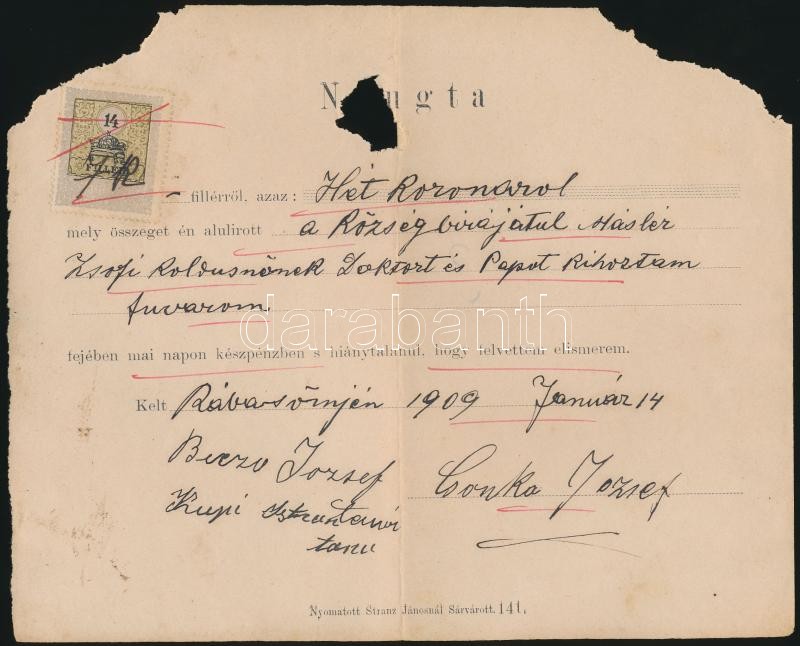 N ugta
14
FILLÉR
fillérről, azaz: Hét Koronárol
mely összeget én alulirott a Község birájátul Máslér
Zsofi Koldusnönek Doktort és Papot Kihoztam
fuvarom
fejében mai napon készpénzben s hiánytalanúl, hogy felvettem elismerem.
Kelt Rábasömjén 1909 Január 14
József
Kupi
Conka József
tanu
Nyomatott Stranz Jánosnál Sárvárott. 141.
darabanth